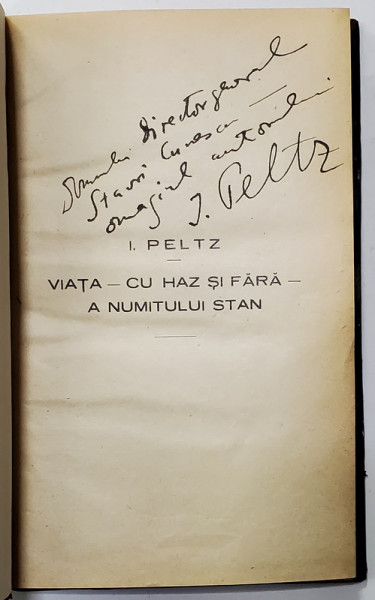 Domnului Director general
Stavri Cunescu —
omagiul autorului
I. Peltz
I. PELTZ
VIAȚA — CU HAZ ȘI FĂRĂ —
A NUMITULUI STAN